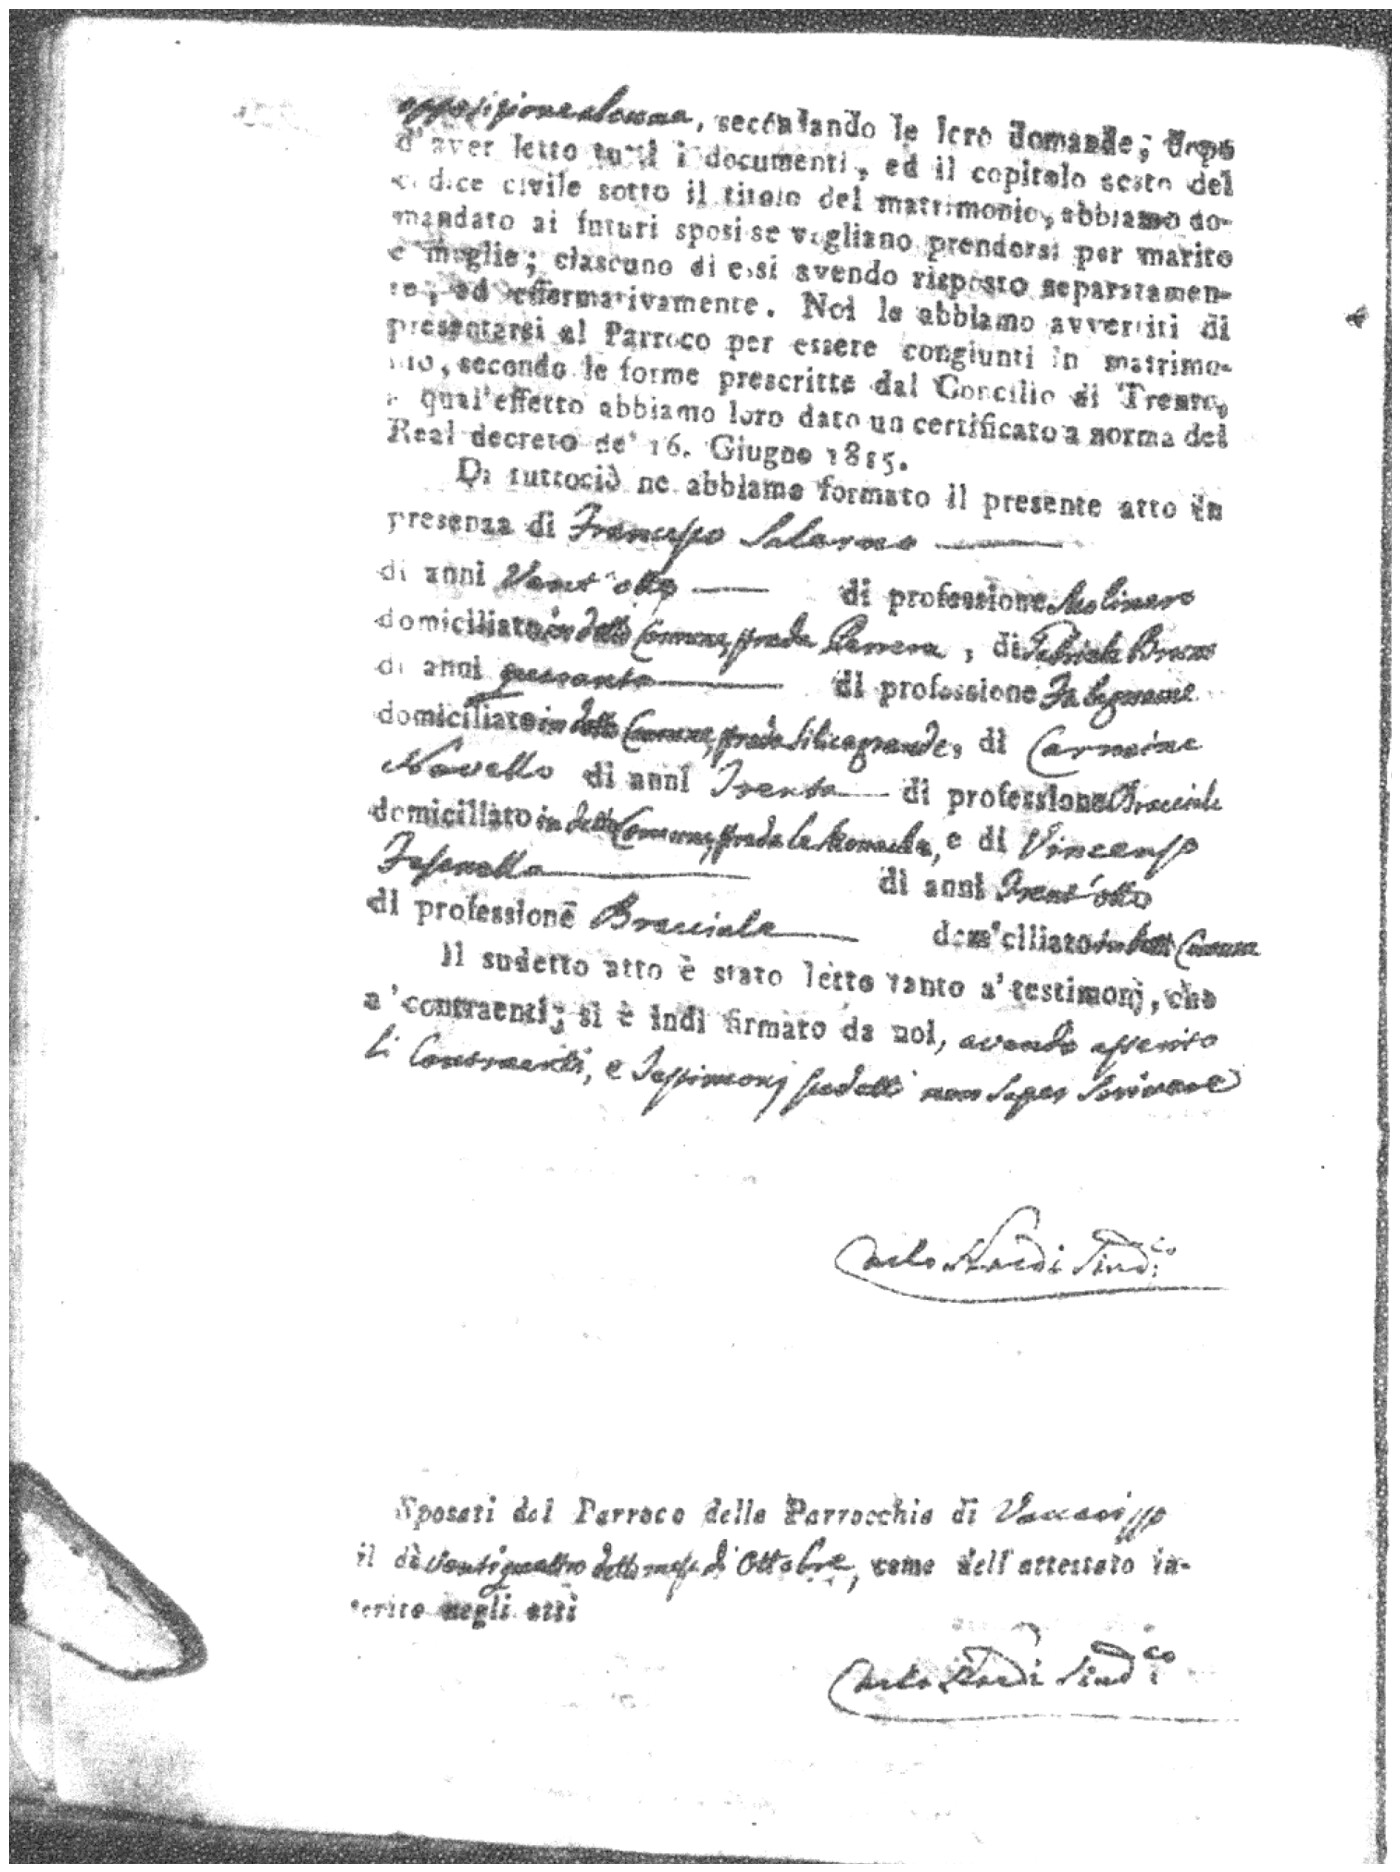 opposizione alcuna, secondando le loro domande; dopo
d'aver letto tutti i documenti, ed il capitolo sesto del
codice civile sotto il titolo del matrimonio, abbiamo do-
mandato ai futuri sposi se vogliano prendersi per marito
e moglie; ciascuno di essi avendo risposto separatamen-
te, ed affermativamente. Noi le abbiamo avvertiti di
presentarsi al Parroco per essere congiunti in matrimo-
nio, secondo le forme prescritte dal Concilio di Trento,
a qual'effetto abbiamo loro dato un certificato a norma del
Real decreto de' 16. Giugno 1815.
Di tuttociò ne abbiamo formato il presente atto in
presenza di Francesco Salerno
di anni Vent'otto di professione Molinaro
domiciliato in detto Comune, strada , di Gabriele
di anni quaranta di professione Falegname
domiciliato in detto Comune, strada Silicagrande, di Carmine
Novello di anni Trenta di professione Bracciale
domiciliato in detto Comune, strada le , e di Vincenzo
di anni Trent'otto
di professione Bracciale domiciliato in detto Comune
Il sudetto atto è stato letto tanto a' testimonj, che
a' contraenti; si è indi firmato da noi, avendo asserito
li Contraenti, e Testimonj sudetti non saper scrivere
Carlo Nardi Sind.co
Sposati dal Parroco della Parrocchia di
il dì ventiquattro detto mese di Ottobre, come dell'attestato in-
serito negli atti
Carlo Nardi Sind.co